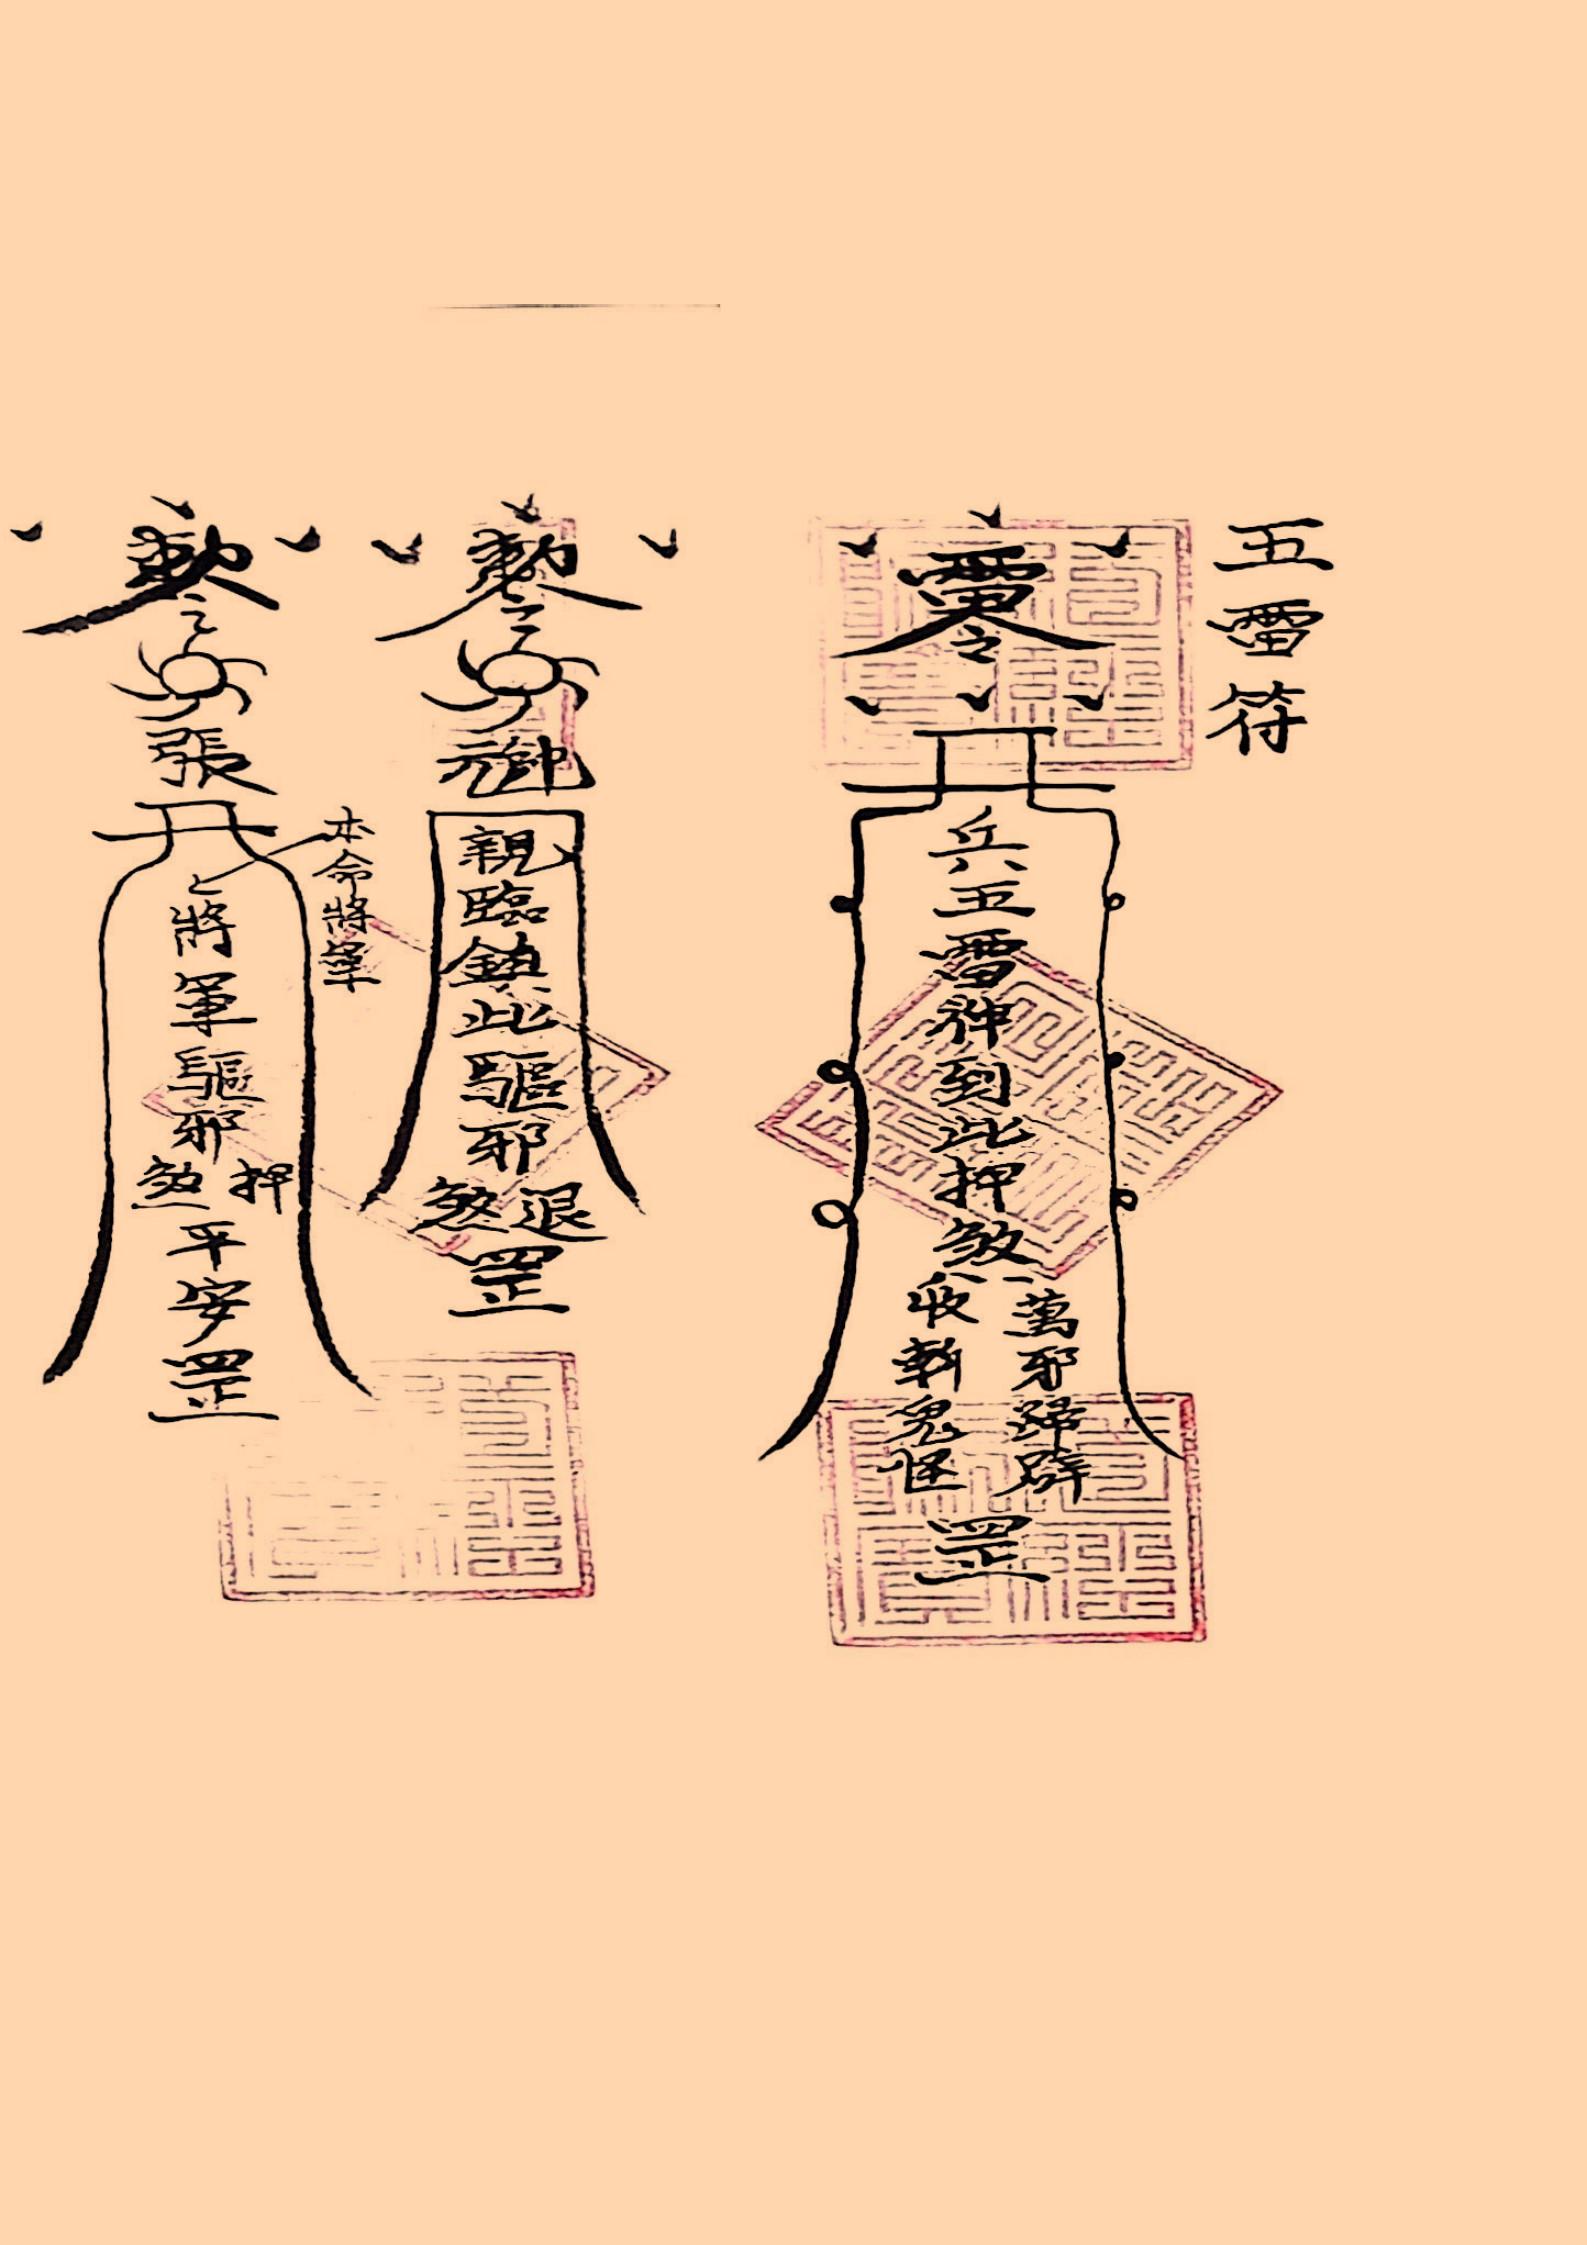 五雷符
雷令
兵五雷神到此押煞
萬邪歸辟
收斬鬼怪
罡
勅令
親臨鎮此驅邪
退
煞
罡
本命將軍
勅令
張
將軍驅邪
押
煞
平安
罡